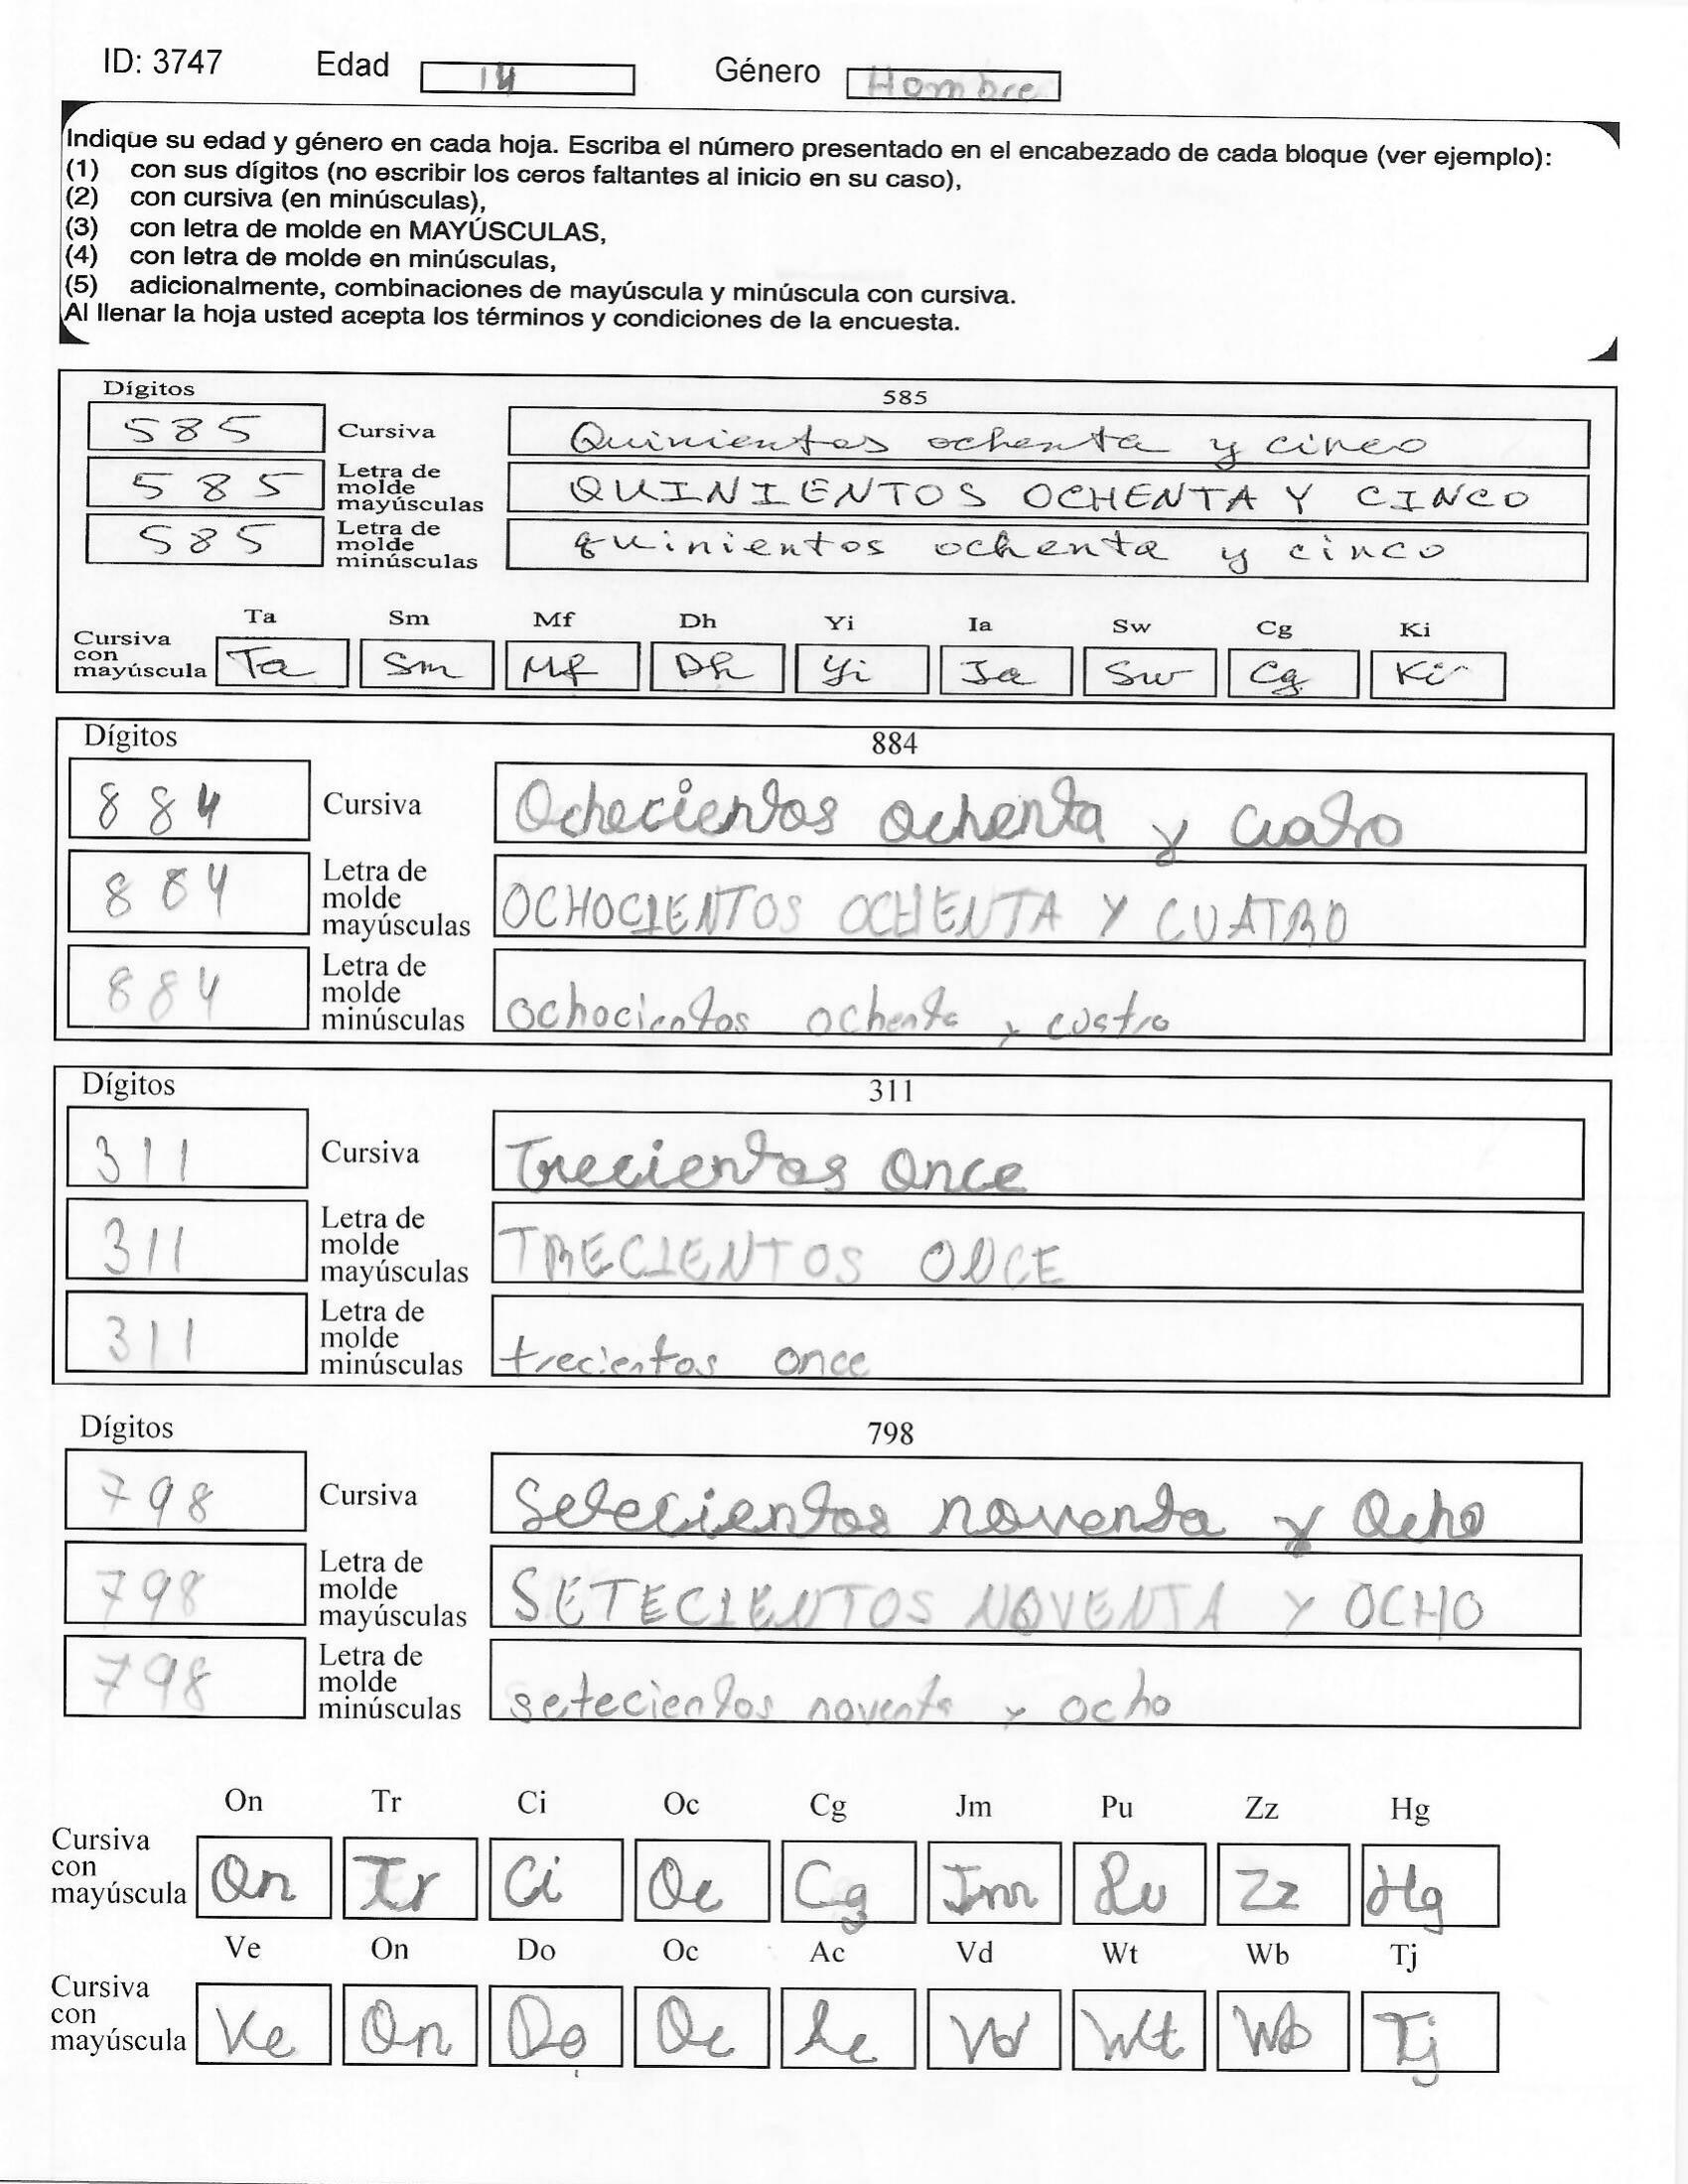 ID: 3747 Edad 14 Género Hombre
Indique su edad y género en cada hoja. Escriba el número presentado en el encabezado de cada bloque (ver ejemplo):
(1) con sus dígitos (no escribir los ceros faltantes al inicio en su caso),
(2) con cursiva (en minúsculas),
(3) con letra de molde en MAYÚSCULAS,
(4) con letra de molde en minúsculas,
(5) adicionalmente, combinaciones de mayúscula y minúscula con cursiva.
Al llenar la hoja usted acepta los términos y condiciones de la encuesta.
Dígitos 585
585 Cursiva Quinientos ochenta y cinco
585 Letra de molde mayúsculas QUINIENTOS OCHENTA Y CINCO
585 Letra de molde minúsculas quinientos ochenta y cinco
Ta Sm Mf Dh Yi Ia Sw Cg Ki
Cursiva con mayúscula Ta Sm Mf Dh Yi Ia Sw Cg Ki
Dígitos 884
884 Cursiva Ochecientos ochenta y cuatro
884 Letra de molde mayúsculas OCHOCIENTOS OCHENTA Y CUATRO
884 Letra de molde minúsculas ochocientos ochenta y cuatro
Dígitos 311
311 Cursiva Trecientos Once
311 Letra de molde mayúsculas TRECIENTOS ONCE
311 Letra de molde minúsculas trecientos once
Dígitos 798
798 Cursiva Setecientos noventa y Ocho
798 Letra de molde mayúsculas SETECIENTOS NOVENTA Y OCHO
798 Letra de molde minúsculas setecientos noventa y ocho
On Tr Ci Oc Cg Jm Pu Zz Hg
Cursiva con mayúscula On Tr Ci Oc Cg Jm Pu Zz Hg
Ve On Do Oc Ac Vd Wt Wb Tj
Cursiva con mayúscula Ve On Do Oc Ac Vd Wt Wb Tj